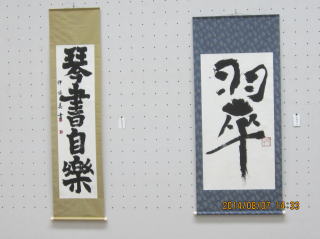 琴書自樂
翠
2014/08/07 14:33